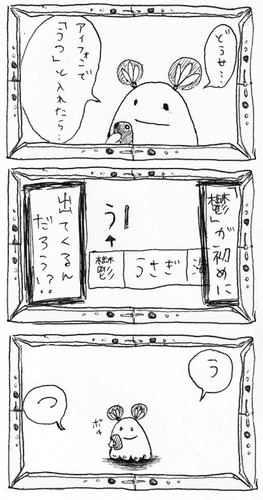 どうせ…
アイフォンで
「うつ」と入れたら…
「鬱」が初めに
う
鬱
うさぎ
海
出てくるん
だろうい?
う
つ
ポチ